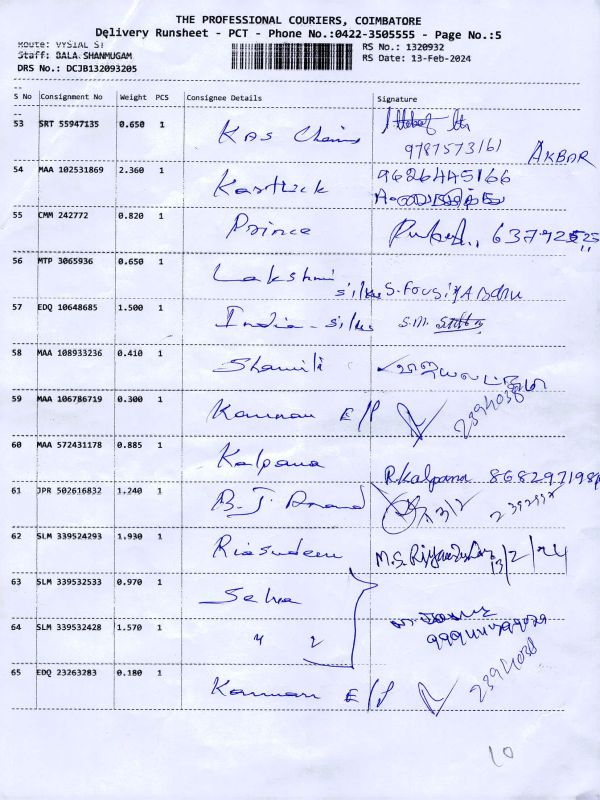 THE PROFESSIONAL COURIERS, COIMBATORE
Delivery Runsheet - PCT - Phone No.:0422-3505555 - Page No.:5
Route: VYSIAL ST
Staff: BALA SHANMUGAM
DRS No.: DCJB132093205
RS No.: 1320932
RS Date: 13-Feb-2024
S No Consignment No Weight PCS Consignee Details Signature
53 SRT 55947135 0.650 1 Kas Chains
9787573161 AKBAR
54 MAA 102531869 2.360 1 Karthick 9626445166
55 CMM 242772 0.820 1 Prince
56 MTP 3065936 0.650 1 Lakshmi silks S.Fousiya Banu
57 EDQ 10648685 1.500 1 India - silks S.M.
58 MAA 108933236 0.410 1 Shamili
59 MAA 106786719 0.300 1 Kannan E/P
60 MAA 572431178 0.885 1 Kalpana R.Kalpana
61 JPR 502616832 1.240 1 B.J. Anand
62 SLM 339524293 1.930 1 Riasudeen M.S. 13/2/24
63 SLM 339532533 0.970 1 Selva
64 SLM 339532428 1.570 1 " 2
65 EDQ 23263283 0.180 1 Kannan E/P
10